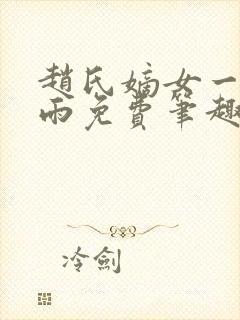 趙氏嫡女一
雨免費筆趣
冷劍